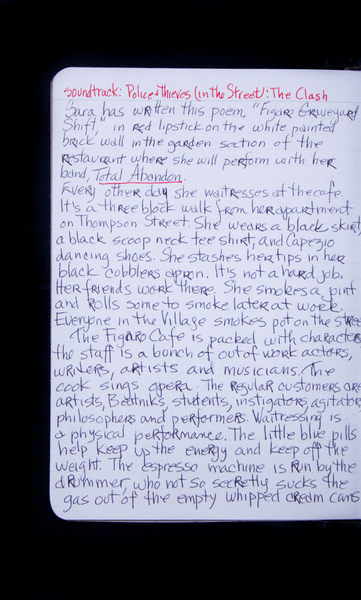 Soundtrack: Police & Thieves (in the Street): The Clash
Sara has written this poem, "Figaro Graveyard
Shift," in red lipstick on the white painted
brick wall in the garden section of the
restaurant where she will perform with her
band, Total Abandon.
Every other day she waitresses at the cafe.
It's a three block walk from her apartment
on Thompson Street. She wears a black skirt,
a black scoop neck tee shirt, and Capezio
dancing shoes. She stashes her tips in her
black cobblers apron. It's not a hard job.
Her friends work there. She smokes a pint
and rolls some to smoke later at work.
Everyone in the Village smokes pot on the stree
The Figaro Cafe is packed with characters
the staff is a bunch of out of work actors,
writers, artists and musicians. The
cook sings opera. The regular customers are
artists, Beatniks, students, instigators, agitators
philosophers and performers. Waitressing is
a physical performance. The little blue pills
help keep up the energy and keep off the
weight. The espresso machine is run by the
drummer, who not so secretly sucks the
gas out of the empty whipped cream cans